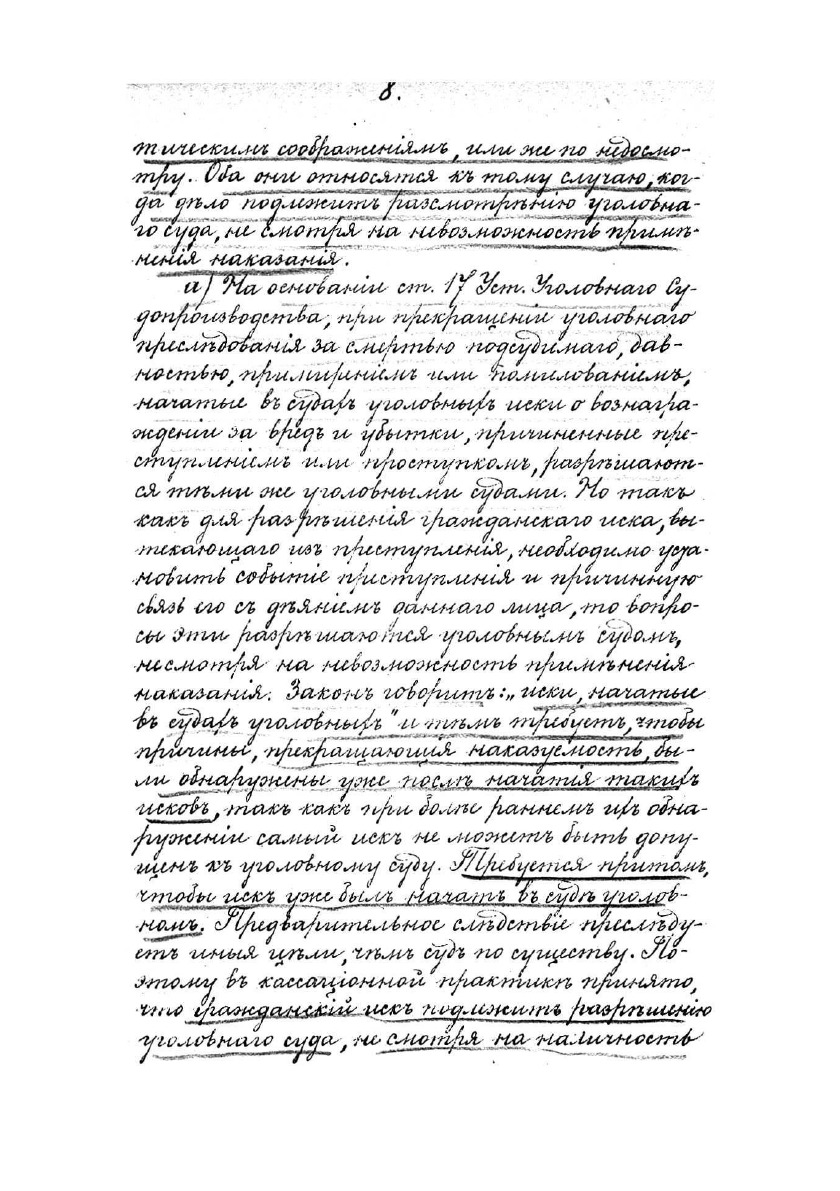 8.
тическимъ соображеніямъ, или же по недосмо-
тру. Оба они относятся къ тому случаю, ког-
да дѣло подлежитъ разсмотрѣнію уголовна-
го суда, не смотря на невозможность примѣ-
ненія наказанія.
а) На основаніи ст. 17 Уст. Уголовнаго Су-
допроизводства, при прекращеніи уголовнаго
преслѣдованія за смертью подсудимаго, дав-
ностью, примиреніемъ или помилованіемъ,
начатые въ судахъ уголовныхъ иски о вознагра-
жденіи за вредъ и убытки, причиненные пре-
ступленіемъ или проступкомъ, разрѣшают-
ся тѣми же уголовными судами. Но такъ
какъ для разрѣшенія гражданскаго иска, вы-
текающаго изъ преступленія, необходимо уста-
новить событіе преступленія и причинную
связь его съ дѣяніемъ даннаго лица, то вопро-
сы эти разрѣшаются уголовнымъ судомъ,
несмотря на невозможность примѣненія
наказанія. Законъ говоритъ: „иски, начатые
въ судахъ уголовныхъ" и тѣмъ требуетъ, чтобы
причины, прекращающія наказуемость, бы-
ли обнаружены уже послѣ начатія такихъ
исковъ, такъ какъ при болѣе раннемъ ихъ обна-
руженіи самый искъ не можетъ быть допу-
щенъ къ уголовному суду. Требуется притомъ,
чтобы искъ уже былъ начатъ въ судѣ уголов-
номъ. Предварительное слѣдствіе преслѣду-
етъ иныя цѣли, чѣмъ судъ по существу. По-
этому въ кассаціонной практикѣ принято,
что гражданскій искъ подлежитъ разрѣшенію
уголовнаго суда, не смотря на наличность